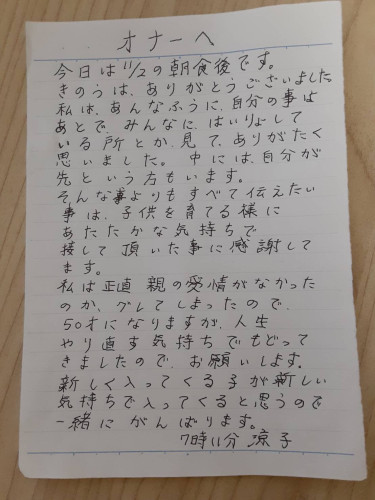 オナーへ
今日は11/2の朝食後です。
きのうは、ありがとうございました
私は、あんなふうに、自分の事は
あとで、みんなに、はいりょして
いる所とか、見て、ありがたく
思いました。中には、自分が
先という方もいます。
そんな事よりもすべて伝えたい
事は、子供を育てる様に
あたたかな気持ちで
接して頂いた事に感謝して
ます。
私は正直親の愛情がなかった
のか、グレてしまったので、
50才になりますが、人生
やり直す気持ちでもどって
きましたので、お願いします。
新しく入ってくる子が新しい
気持ちで入ってくると思うので
一緒にがんばります。
7時11分 涼子